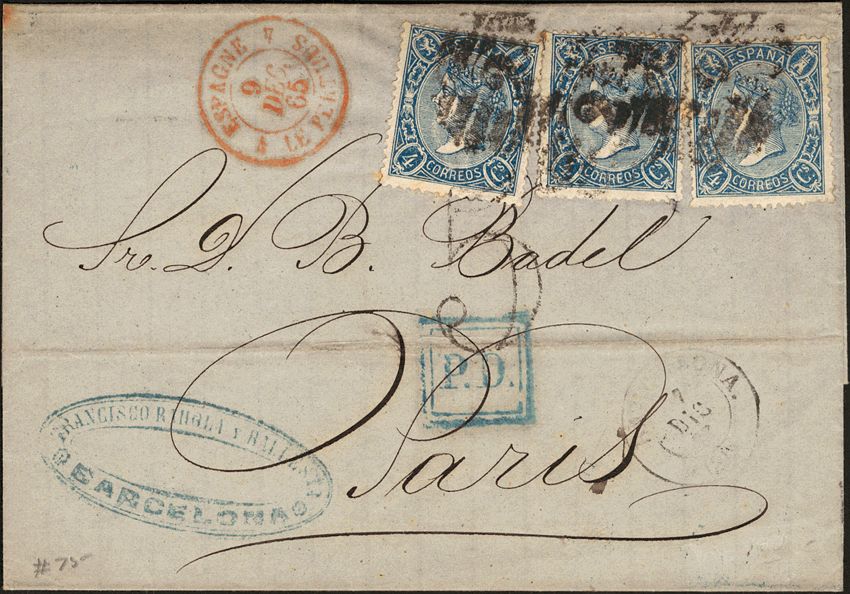 ESPAGNE
9
DEC.
65
A LE PE
ESPAÑA
4 CORREOS Cs
ESPAÑA
4 CORREOS Cs
ESPAÑA
4 CORREOS Cs
Sr. D. B. Badel
Paris
P.D.
ONA.
7
DIC
FRANCISCO
Y
BARCELONA
#75-